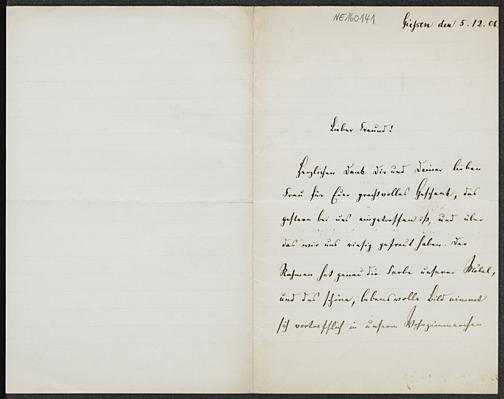 NE/160141
Gießen den 5.12.06
Lieber Freund!
Herzlichen Dank Dir und Deiner lieben
Frau für Euer prachtvolles Geschenk, das
gestern bei uns eingetroffen ist, und über
das wir uns riesig gefreut haben. Der
Rahmen hat genau die Farbe unserer Möbel,
und das schöne, lebensvolle Bild nimmt
sich vortrefflich in unserem Wohnzimmerchen